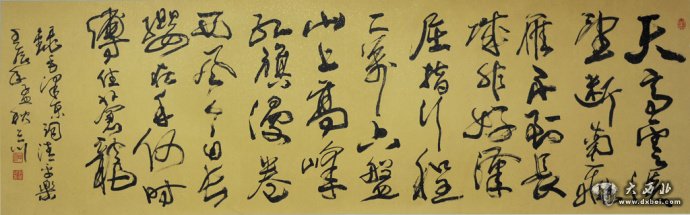 天高雲淡
望断南飛
雁不到長
城非好漢
屈指行程
二萬六盤
山上高峰
紅旗漫卷
西風今日長
纓在手何時
縛住蒼龍
錄毛澤東詞清平樂
壬辰年孟秋
大西北
www.dxbei.com